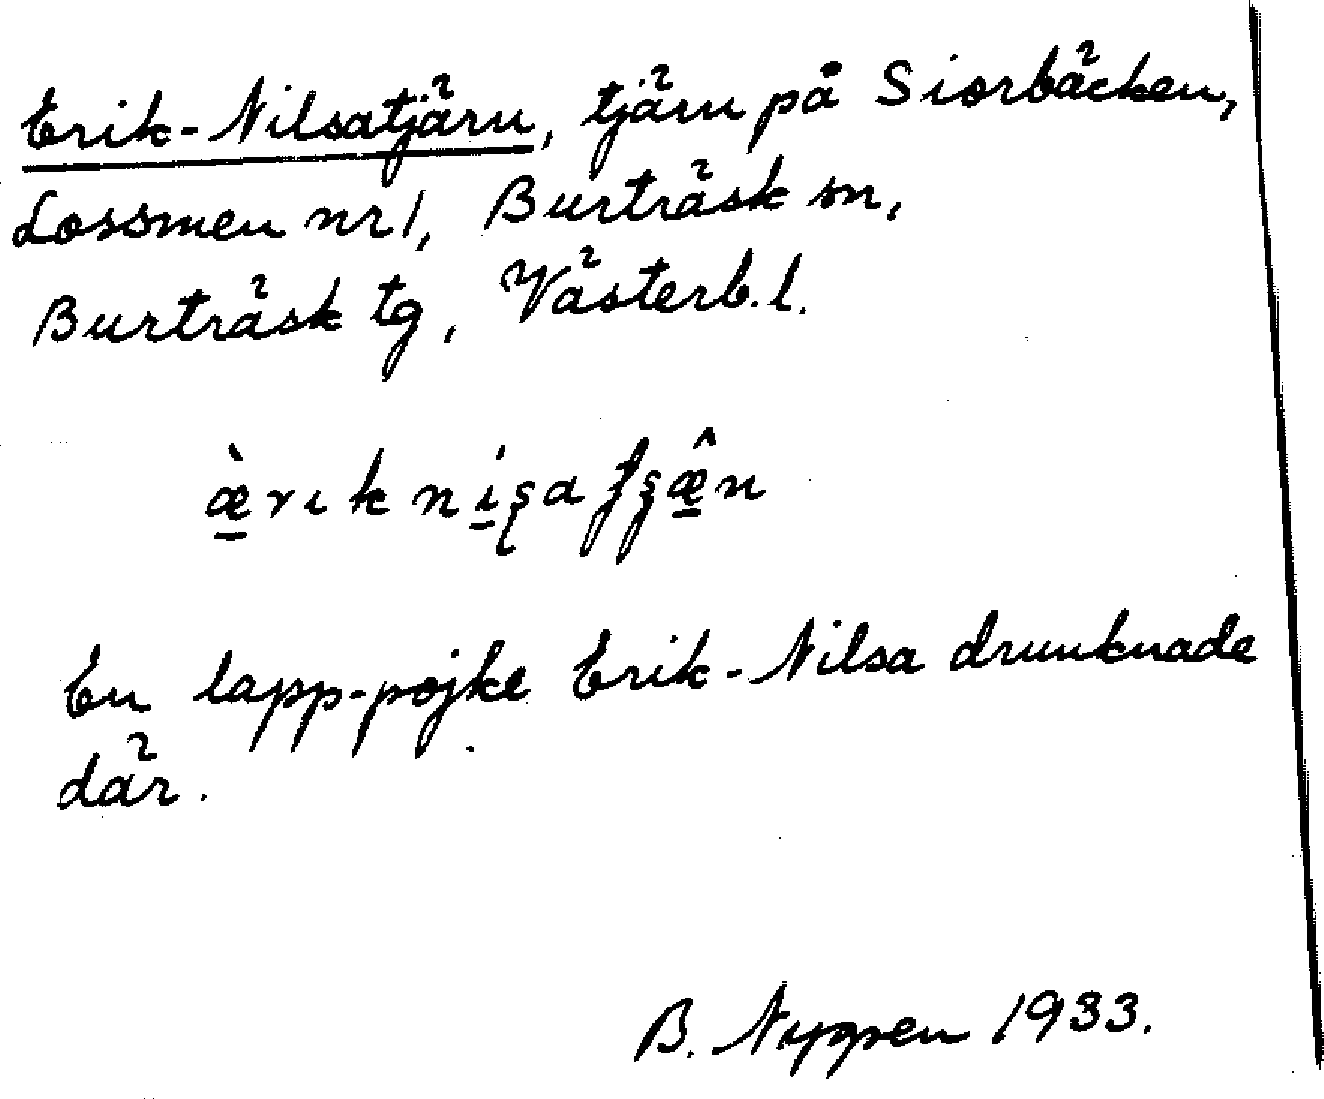 Erik-Nilsatjärn, tjärn på Siorbäcken,
Lossmen nr 1, Burträsk sn,
Burträsk tg, Västerb. l.
En lapp-pojke Erik-Nilsa drunknade
där.
B. Nygren 1933.